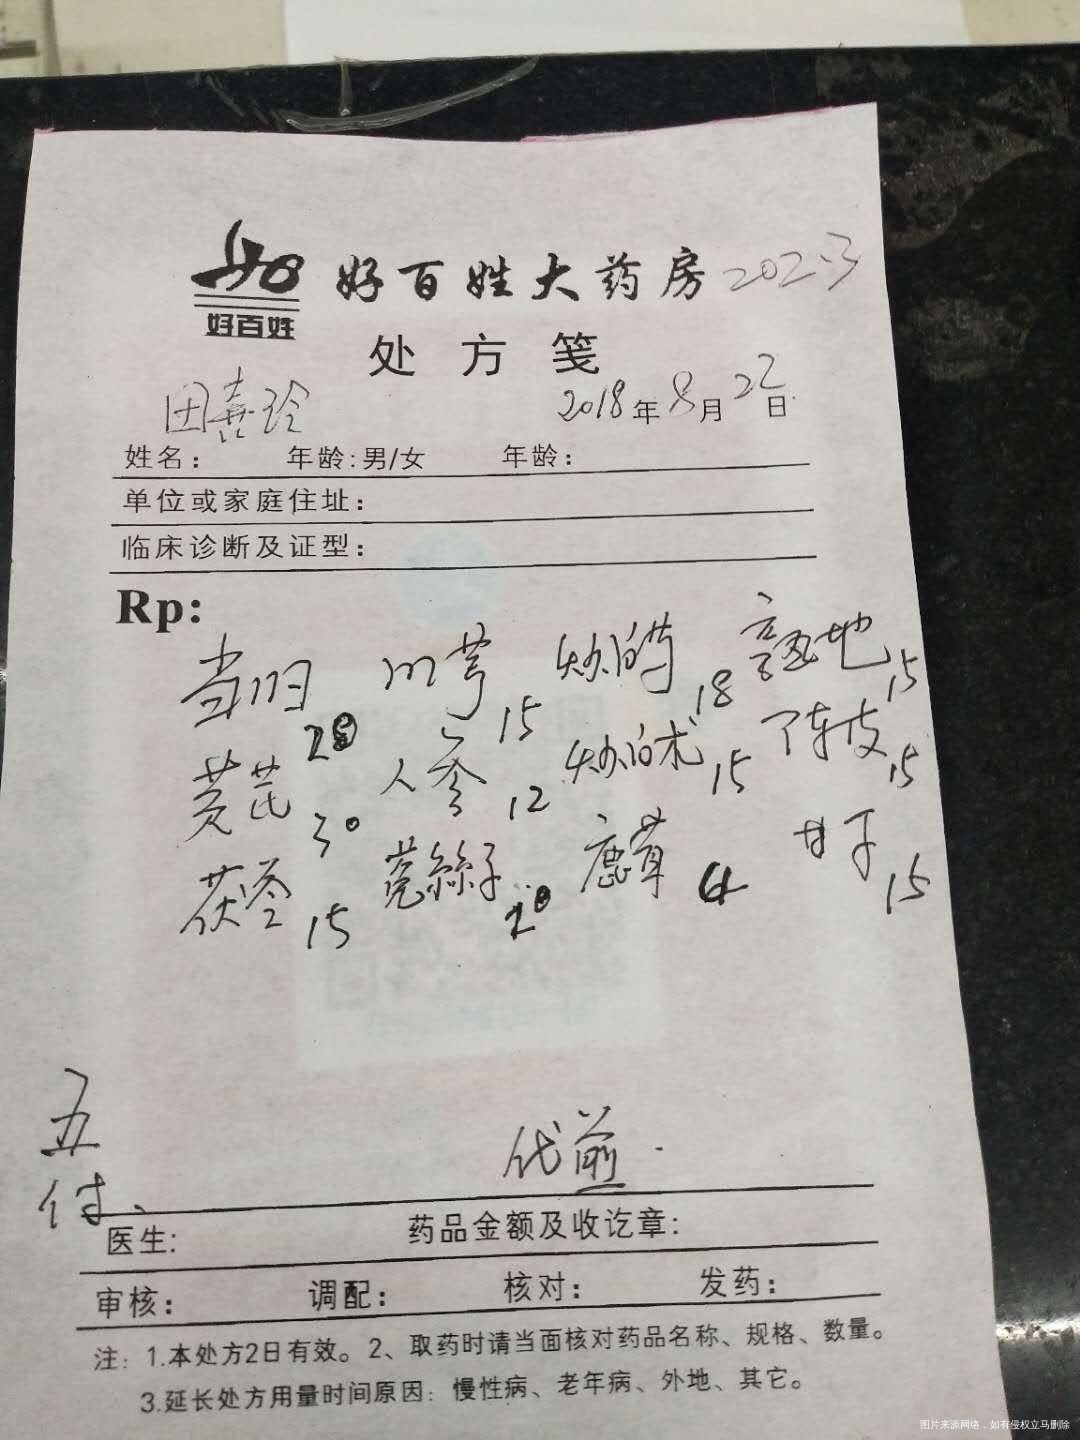 好百姓
好百姓大药房 202.3
处方笺
田喜玲 2018年8月22日
姓名： 年龄:男/女 年龄：
单位或家庭住址：
临床诊断及证型：
Rp:
当归 川芎 15 炒白芍 18 熟地 15
黄芪 30 人参 12 炒白术 15 陈皮 15
茯苓 15 菟絲子 20 鹿茸 4 甘草 15
五
付、
代煎.
医生: 药品金额及收讫章:
审核： 调配： 核对： 发药：
注：1.本处方2日有效。2、取药时请当面核对药品名称、规格、数量。
3.延长处方用量时间原因：慢性病、老年病、外地、其它。
图片来源网络，如有侵权立马删除